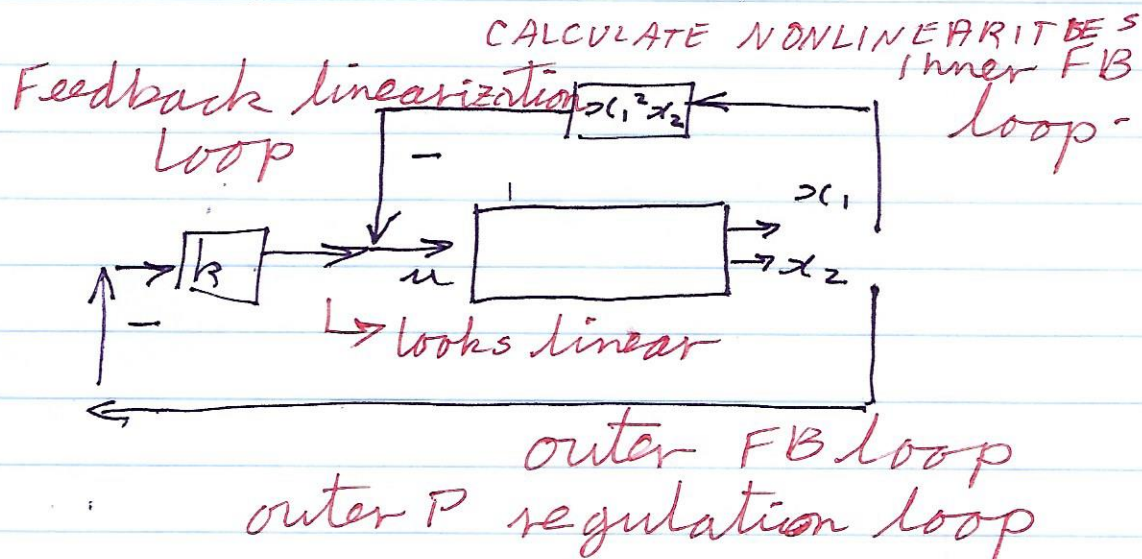 CALCULATE NONLINEARITBES
inner FB
loop.
Feedback linearization
loop
x₁²x₂
−
x₁
x₂
k
u
−
↳ looks linear
outer FB loop
outer P regulation loop